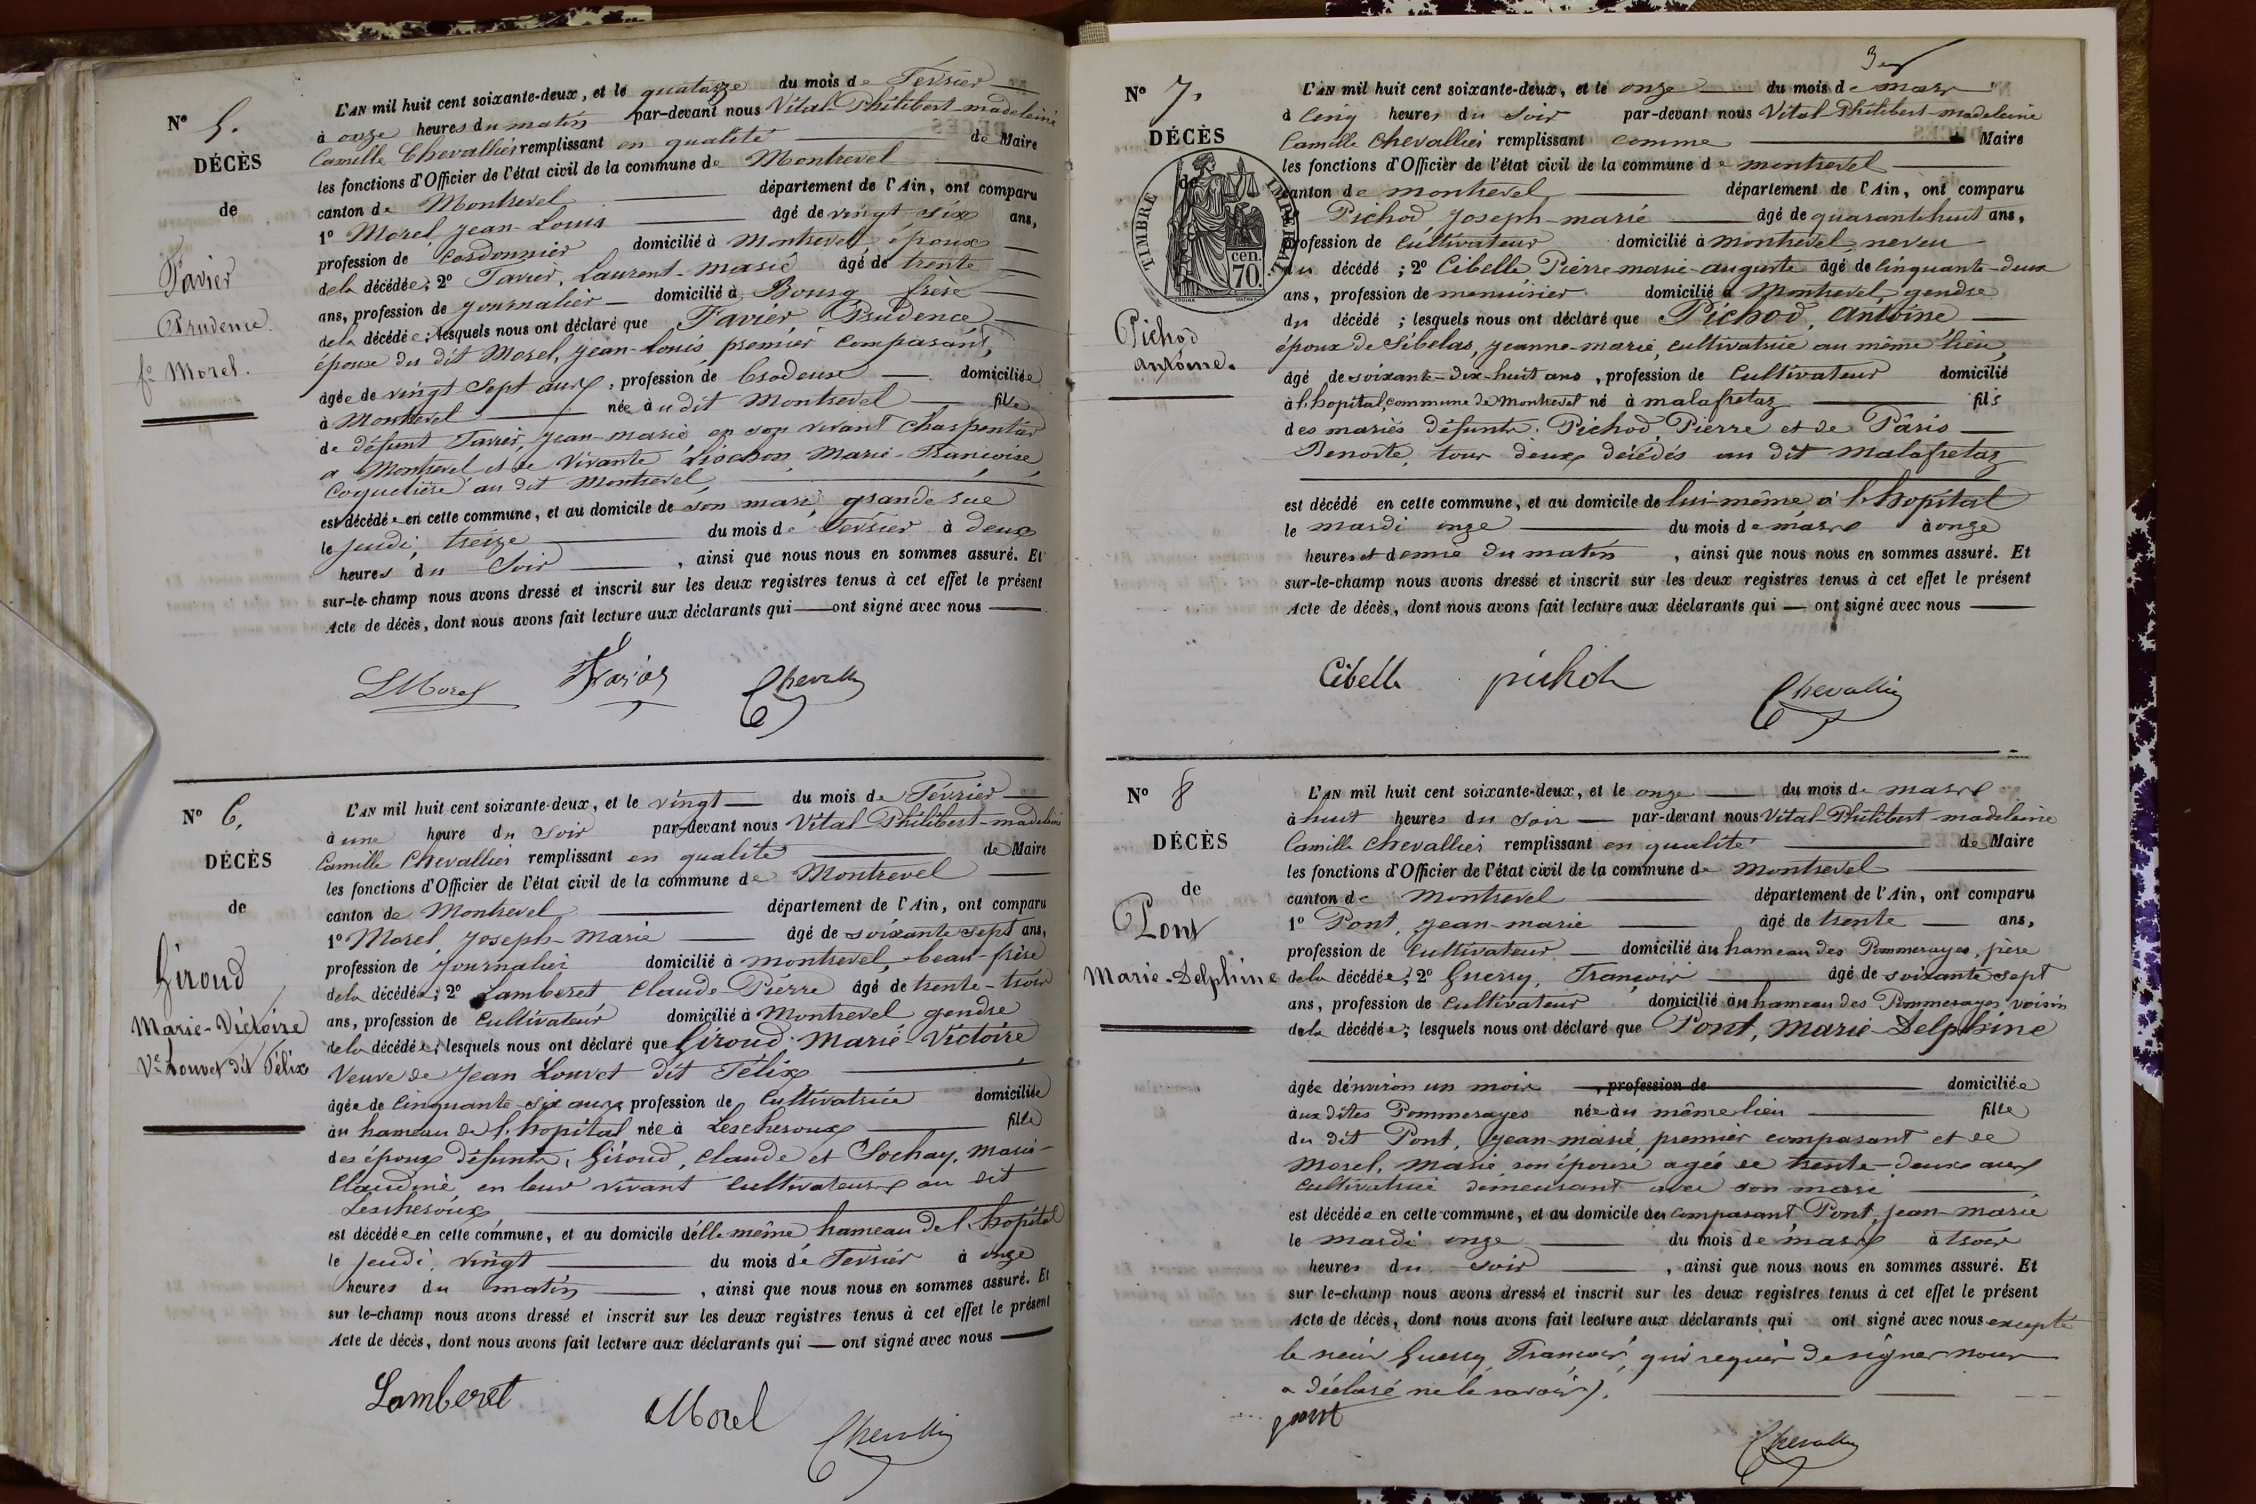 N° 5.
DÉCÈS
de
Favier
Prudence.
fe Morel.
L'AN mil huit cent soixante-deux, et le quatorze du mois de Février
à onze heures du matin par-devant nous Vital-Philibert-madeleine
Camille Chevallier remplissant en qualité de Maire
les fonctions d'Officier de l'état civil de la commune de Montrevel
canton de Montrevel département de l'Ain, ont comparu
1° Morel, Jean-Louis âgé de vingt-six ans,
profession de Cordonnier domicilié à Montrevel, époux
de la décédée; 2° Favier, Laurent-Marie âgé de trente
ans, profession de journalier domicilié à Bourg, frère
de la décédée; lesquels nous ont déclaré que Favier Prudence
épouse du dit Morel, Jean-Louis, premier comparant,
âgée de vingt sept ans, profession de Brodeuse domiciliée
à Montrevel née au dit Montrevel fille
de défunt Favier, Jean-marie, en son vivant Charpentier
à Montrevel et de Vivante Liochon, Marie-Françoise,
Coquetière au dit Montrevel,
est décédée en cette commune, et au domicile de son mari, grande rue
le jeudi, treize du mois de Février à deux
heures du Soir, ainsi que nous nous en sommes assuré. Et
sur-le-champ nous avons dressé et inscrit sur les deux registres tenus à cet effet le présent
Acte de décès, dont nous avons fait lecture aux déclarants qui — ont signé avec nous
LMorel Favier Chevallier
N° 6.
DÉCÈS
de
Giroud
Marie-Victoire
Ve Louvet dit Félix
L'AN mil huit cent soixante-deux, et le vingt du mois de Février
à une heure du soir par-devant nous Vital-Philibert-madeleine
Camille Chevallier remplissant en qualité de Maire
les fonctions d'Officier de l'état civil de la commune de Montrevel
canton de Montrevel département de l'Ain, ont comparu
1° Morel, Joseph-Marie âgé de soixante sept ans,
profession de Journalier domicilié à montrevel, beau-frère
de la décédée; 2° Lamberet Claude-Pierre âgé de trente-trois
ans, profession de Cultivateur domicilié à Montrevel gendre
de la décédée; lesquels nous ont déclaré que Giroud Marie-Victoire
Veuve de Jean Louvet dit Félix
âgée de Cinquante-six ans, profession de Cultivatrice domiciliée
au hameau de l'hopital née à Lescheroux fille
des époux défunts, Giroud, Claude et Sochay, Marie-
Claudine, en leur vivant Cultivateurs au dit
Lescheroux
est décédée en cette commune, et au domicile d'elle même hameau de l'hopital
le jeudi, vingt du mois de Fevrier à onze
heures du matin, ainsi que nous nous en sommes assuré. Et
sur le-champ nous avons dressé et inscrit sur les deux registres tenus à cet effet le présent
Acte de décès, dont nous avons fait lecture aux déclarants qui — ont signé avec nous
Lamberet Morel Chevallier
3
N° 7.
DÉCÈS
de
TIMBRE IMPERIAL
70 cen.
Pichod
antoine.
L'AN mil huit cent soixante-deux, et le onze du mois de mars
à cinq heures du soir par-devant nous Vital-Philibert-madeleine
Camille Chevallier remplissant comme Maire
les fonctions d'Officier de l'état civil de la commune de montrevel
canton de montrevel département de l'Ain, ont comparu
Pichod, Joseph-marie âgé de quarante huit ans,
profession de Cultivateur domicilié à montrevel, neveu
du décédé; 2° Cibelle Pierre marie-auguste âgé de Cinquante-deux
ans, profession de menuisier domicilié à Montrevel, gendre
du décédé; lesquels nous ont déclaré que Pichod, Antoine
époux de Sibelas, Jeanne-marie, cultivatrice au même lieu,
âgé de soixante-dix-huit ans, profession de Cultivateur domicilié
à l'hopital commune de Montrevel né à malafretaz fils
des mariés défunts, Pichod Pierre et de Pâris
Benoite, tous deux décédés au dit Malafretaz
est décédé en cette commune, et au domicile de lui-même à l'hopital
le mardi onze du mois de mars à onze
heures et demie du matin, ainsi que nous nous en sommes assuré. Et
sur-le-champ nous avons dressé et inscrit sur les deux registres tenus à cet effet le présent
Acte de décès, dont nous avons fait lecture aux déclarants qui — ont signé avec nous
Cibelle pichod Chevallier
N° 8
DÉCÈS
de
Pont
Marie-Delphine
L'AN mil huit cent soixante-deux, et le onze du mois de mars
à huit heures du soir par-devant nous Vital-Philibert-madeleine
Camille Chevallier remplissant en qualité de Maire
les fonctions d'Officier de l'état civil de la commune de Montrevel
canton de Montrevel département de l'Ain, ont comparu
1° Pont, Jean-marie âgé de trente ans,
profession de Cultivateur domicilié au hameau des Pommerayes, père
de la décédée; 2° Guerry, François âgé de soixante sept
ans, profession de Cultivateur domicilié au hameau des Pommerayes, voisin
de la décédée; lesquels nous ont déclaré que Pont, Marie-Delphine
âgée d'environ un mois, profession de domiciliée
aux dites Pommerayes née au même lieu fille
du dit Pont, Jean-marie, premier comparant et de
Morel, Marie, son épouse agée de trente-deux ans
cultivatrice demeurant avec son mari
est décédée en cette commune, et au domicile du comparant Pont, Jean-marie
le mardi onze du mois de mars à trois
heures du soir, ainsi que nous nous en sommes assuré. Et
sur le-champ nous avons dressé et inscrit sur les deux registres tenus à cet effet le présent
Acte de décès, dont nous avons fait lecture aux déclarants qui ont signé avec nous excepté
le sieur Guerry, François, qui requis de signer nous
a déclaré ne le savoir).
pont Chevallier